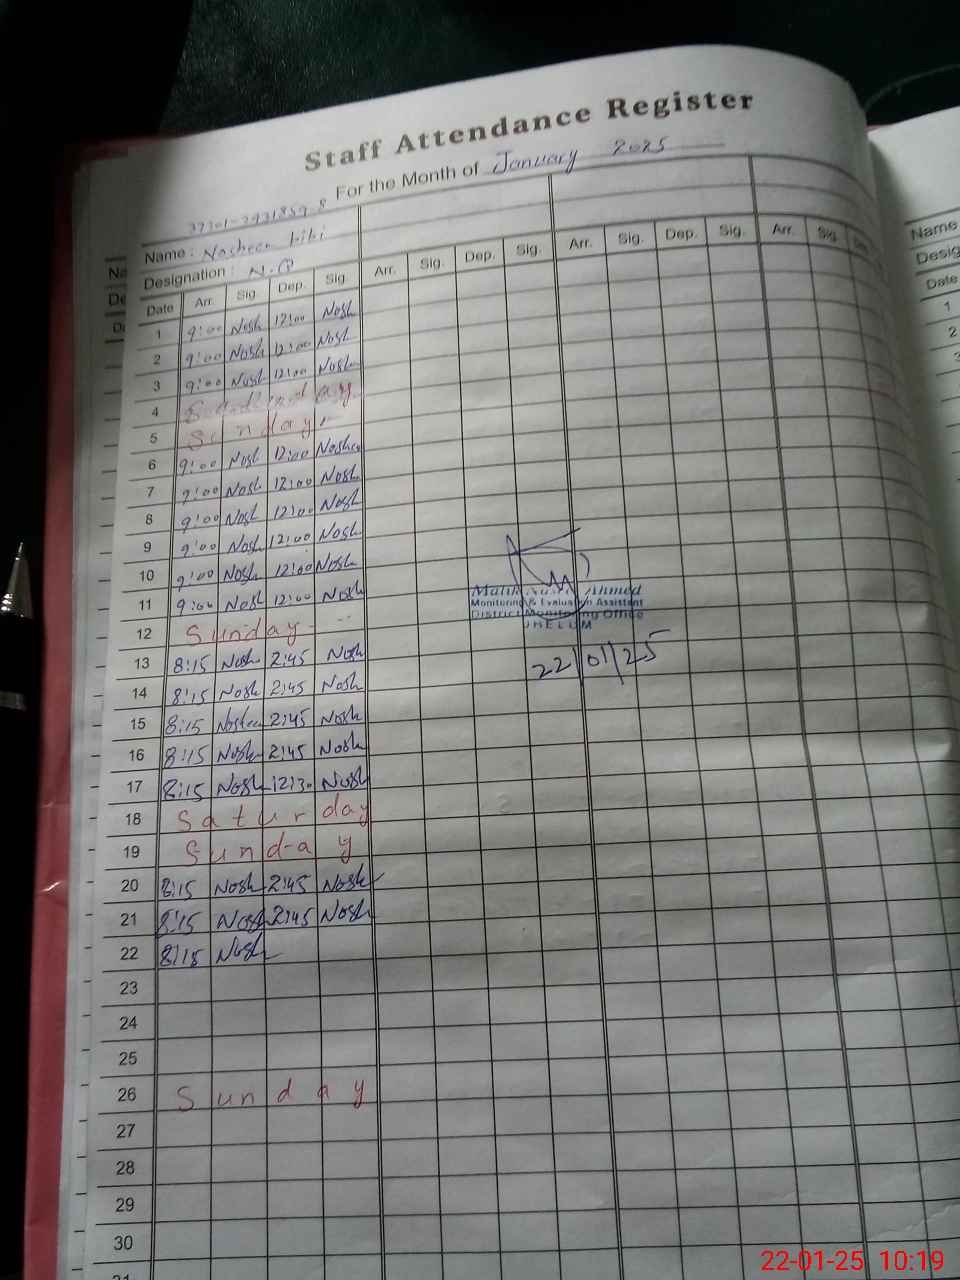 Staff Attendance Register
For the Month of January 2025
Name : Nosheen bibi
Designation :
Date Arr. Sig. Dep. Sig. Arr. Sig. Dep. Sig. Arr. Sig. Dep. Sig. Arr. Sig. Dep.
1 9:00 Nosh 12:00 Nosh
2 9:00 Nosh 12:00 Nosh
3 9:00 Nosh 12:00 Nosh
4
5 Sunday
6 9:00 Nosh 12:00 Noshee
7 9:00 Nosh 12:00 Nosh
8 9:00 Nosh 12:00 Nosh
9 9:00 Nosh 12:00 Nosh
10 9:00 Nosh 12:00 Nosh
11 9:00 Nosh 12:00 Nosh
12 Sunday
13 8:15 Nosh 2:45 Nosh
14 8:15 Nosh 2:45 Nosh
15 8:15 Noshee 2:45 Nosh
16 8:15 Nosh 2:45 Nosh
17 8:15 Nosh 12:30 Nosh
18 Saturday
19 Sunday
20 8:15 Nosh 2:45 Nosh
21 8:15 Nosh 2:45 Nosh
22 8:15 Nosh
23
24
25
26 Sunday
27
28
29
30
31
Malik Ahmed
Monitoring & Evaluation Assistant
District Monitoring Office
JHELUM
22/01/25
Name
Desig
Date
1
2
3
22-01-25 10:19